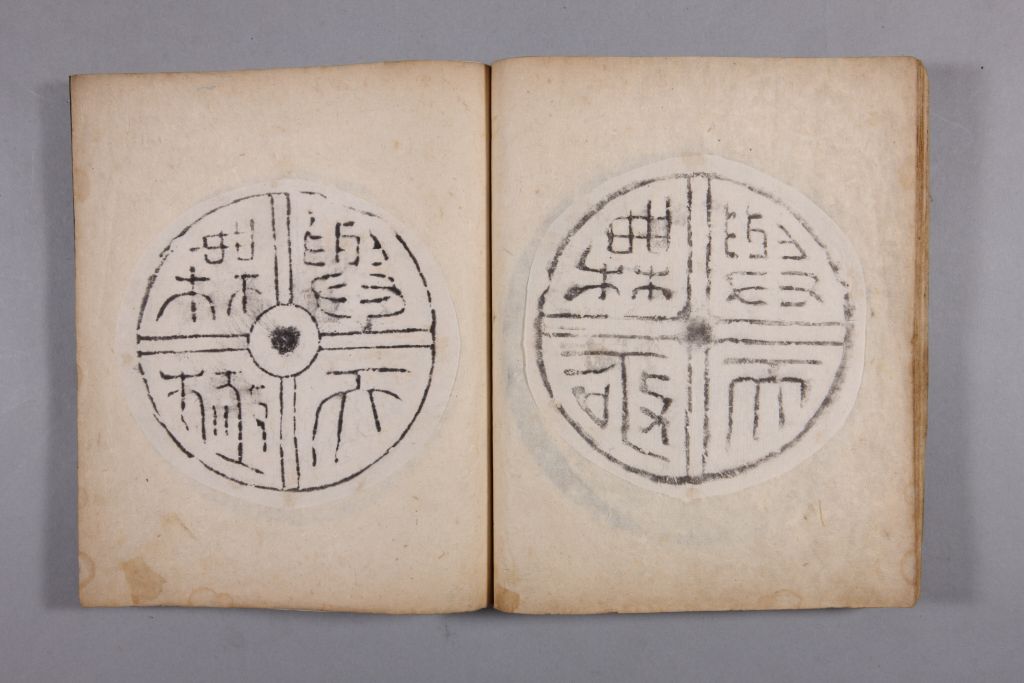 與天
無極
與天
無極